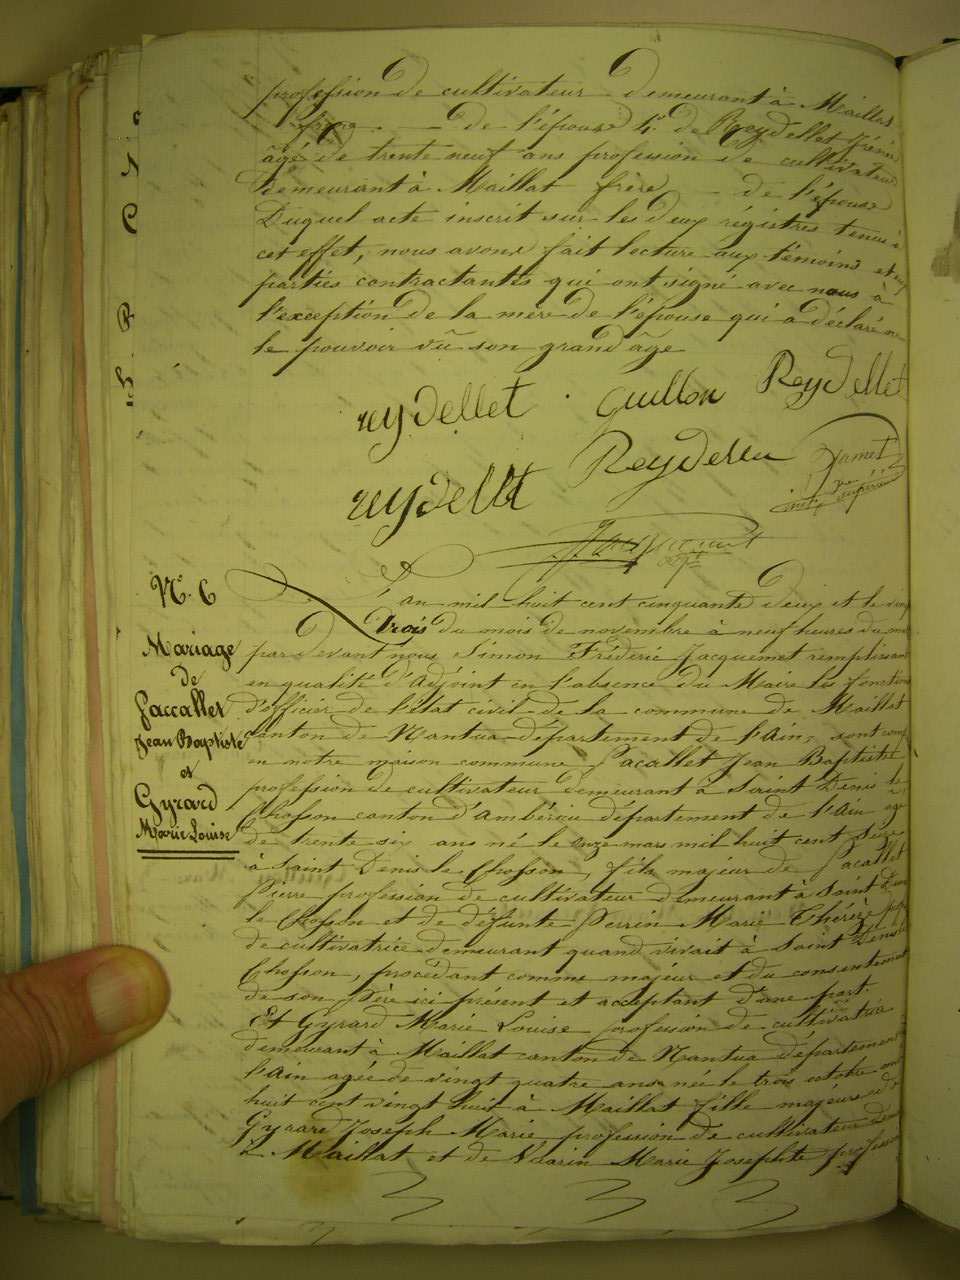 profession de cultivateur demeurant à Maillat
frère de l'épouse 4° de Reydellet
âgé de trente neuf ans profession de cultivateur
demeurant à Maillat frère de l'épouse
Duquel acte inscrit sur les deux régistres tenus à
cet effet, nous avons fait lecture aux témoins et aux
parties contractantes qui ont signé avec nous à
l'exception de la mère de l'épouse qui a déclaré ne
le pouvoir vû son grand âge
reydellet . Guillon Reydellet
reydellet Reydellet Jamet
Jacquemet
N° 6
Mariage
de
Paccallet
Jean Baptiste
et
Gyrard
Marie Louise
L'an mil huit cent cinquante deux et le vingt
trois du mois de novembre à neuf heures du matin
par devant nous Simon Fréderic Jacquemet remplissant
en qualité d'Adjoint en l'absence du Maire les fonctions
d'officier de l'état civil de la commune de Maillat
canton de Nantua département de l'Ain, sont comp
en notre maison commune Pacallet Jean Baptiste
profession de cultivateur demeurant à Saint Denis le
Chosson canton d'Ambérieu département de l'Ain agé
de trente six ans né le onze mars mil huit cent seize
à Saint Denis le Chosson, fils majeur de Pacallet
Pierre profession de cultivateur demeurant à Saint Denis
le Chosson et de défunte Perrin Marie Thérèze prof
de cultivatrice demeurant quand vivait à Saint Denis le
Chosson, procédant comme majeur et du consentement
de son père ici présent et acceptant d'une part.
Et Gyrard Marie Louise profession de cultivatrice
demeurant à Maillat canton de Nantua département de
l'Ain agée de vingt quatre ans née le trois octobre mil
huit cent vingt huit à Maillat fille majeure de
Gyrard Joseph Marie profession de cultivateur dem
à Maillat et de Marie Josephte profession